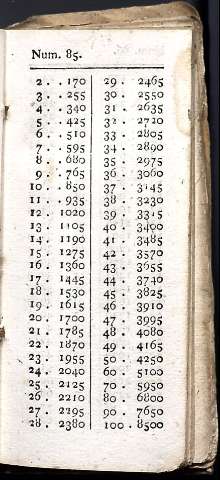 Num. 85.
2 . . 170
3 . . 255
4 . . 340
5 . . 425
6 . . 510
7 . . 595
8 . . 680
9 . . 765
10 . . 850
11 . . 935
12 . 1020
13 . 1105
14 . 1190
15 . 1275
16 . 1360
17 . 1445
18 . 1530
19 . 1615
20 . 1700
21 . 1785
22 . 1870
23 . 1955
24 . 2040
25 . 2125
26 . 2210
27 . 2295
28 . 2380
29 . 2465
30 . 2550
31 . 2635
32 . 2720
33 . 2805
34 . 2890
35 . 2975
36 . 3060
37 . 3145
38 . 3230
39 . 3315
40 . 3490
41 . 3485
42 . 3570
43 . 3655
44 . 3740
45 . 3825
46 . 3910
47 . 3995
48 . 4080
49 . 4165
50 . 4250
60 . 5100
70 . 5950
80 . 6800
90 . 7650
100 . 8500